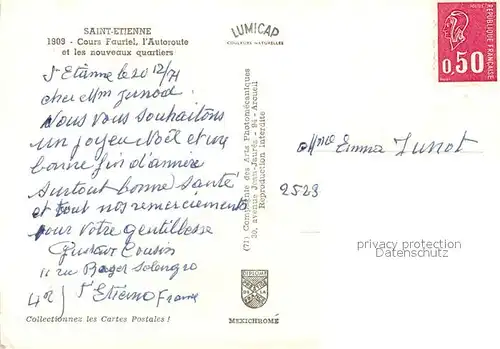 SAINT-ETIENNE
1909 - Cours Fauriel, l'Autoroute
et les nouveaux quartiers
LUMICAP
COULEURS NATURELLES
0,50
REPUBLIQUE FRANCAISE
St Etienne le 20 12/71
cher Mm Junod
Nous vous souhaitons
un joyeu Noël et une
bonne fin d'année
surtout bonne santé
et tout nos remerciements
pour votre gentillesse
Gustave Cousin
11 rue Solengro
42 St Etienne France
Mme Emma Junot
2523
(71) Compagnie des Arts Photomécaniques
30, avenue Jean-Jaurès - 94 - Arcueil
Reproduction interdite
privacy protection
Datenschutz
Collectionnez les Cartes Postales !
MEXICHROME